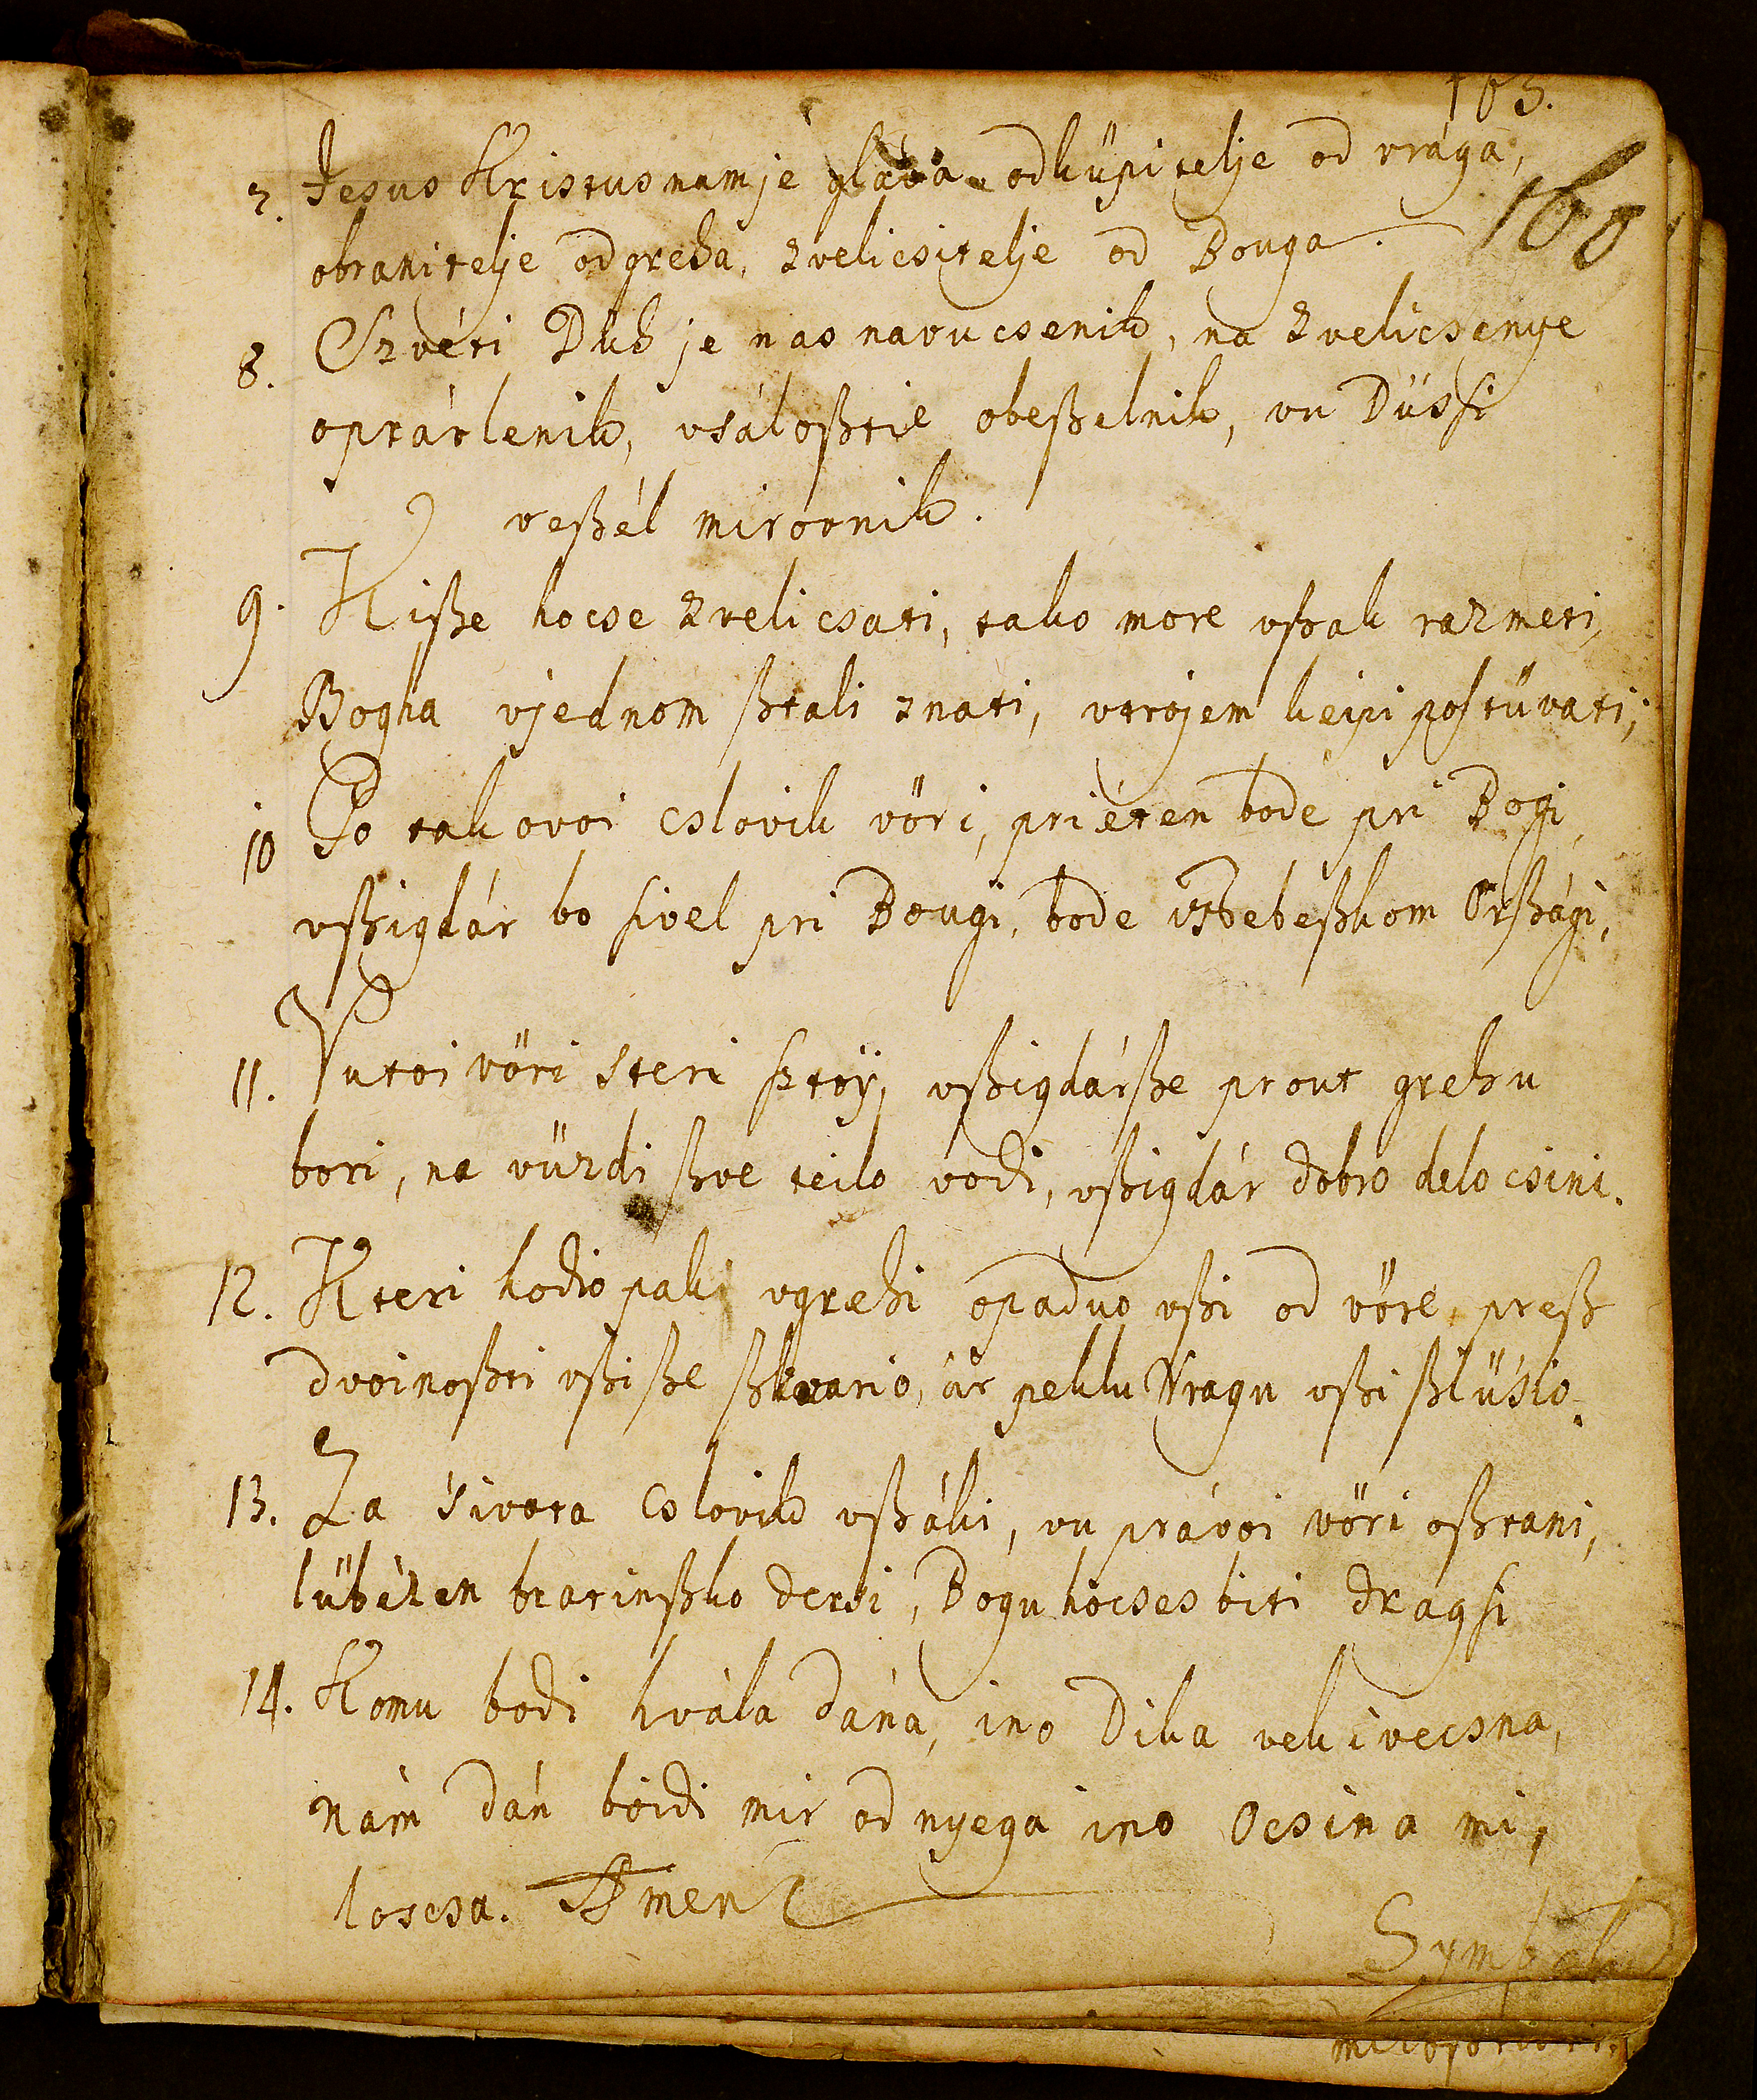 103.
160
7. Jesus Kristus nam je glava odküpitelje od vrága,
obranitelje od greha, zvelicsitelje od Bouga.
8. Szvéti Duh je nas navucsenik, na zvelicsenye
oprávlenik, vsáloßtie obeßelnik, vu Düssi
veßél mirovnik.
9. Kiße hocse zvelicsati, tako more vßak razmeti,
Bogha vjednom ßtali znati, vtrojem keipi postüvati;
10 Po takovoi cslovik vöri, priéten bode pri Bogi,
vßigdár bo sivel pri Bougi, bode vNebeßkom Orßági,
11. Vutoi vöri steri sztoÿ, vßigdárße prout grehu
bori, na vüzdi ßve teilo vodi, vßigdár dobro delo csini.
12. Kteri hodio paki vgrehi opaduo vßi od vöre, preß
dvoinoßti vßi ße ßkvario, ár peklu Vragu vßi ßlüsio.
13. Za sivota cslovik vßáki, vu právoi vöri oßtani,
lübézen bratinßko dersi, Bogu hocses biti dragsi
14. Komu bodi hvála dána, ino Dika vekivecsna,
nám dán boidi mir od nyega ino Ocsina mi,
loscsa. Amen